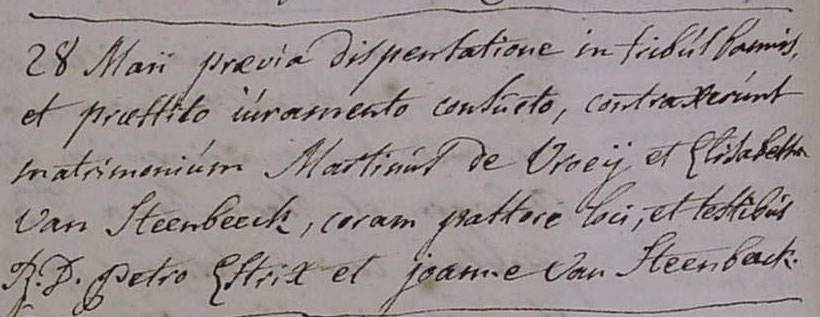 28 Maii prævia dispensatione in tribus bannis,
et præstito iúramento consúeto, contraxerúnt
matrimoniúm Martinús de Vroeÿ et Elisabetha
Van Steenbeeck, coram pastore loci, et testibús
R. D. petro Estrix et joanne Van Steenbeeck.